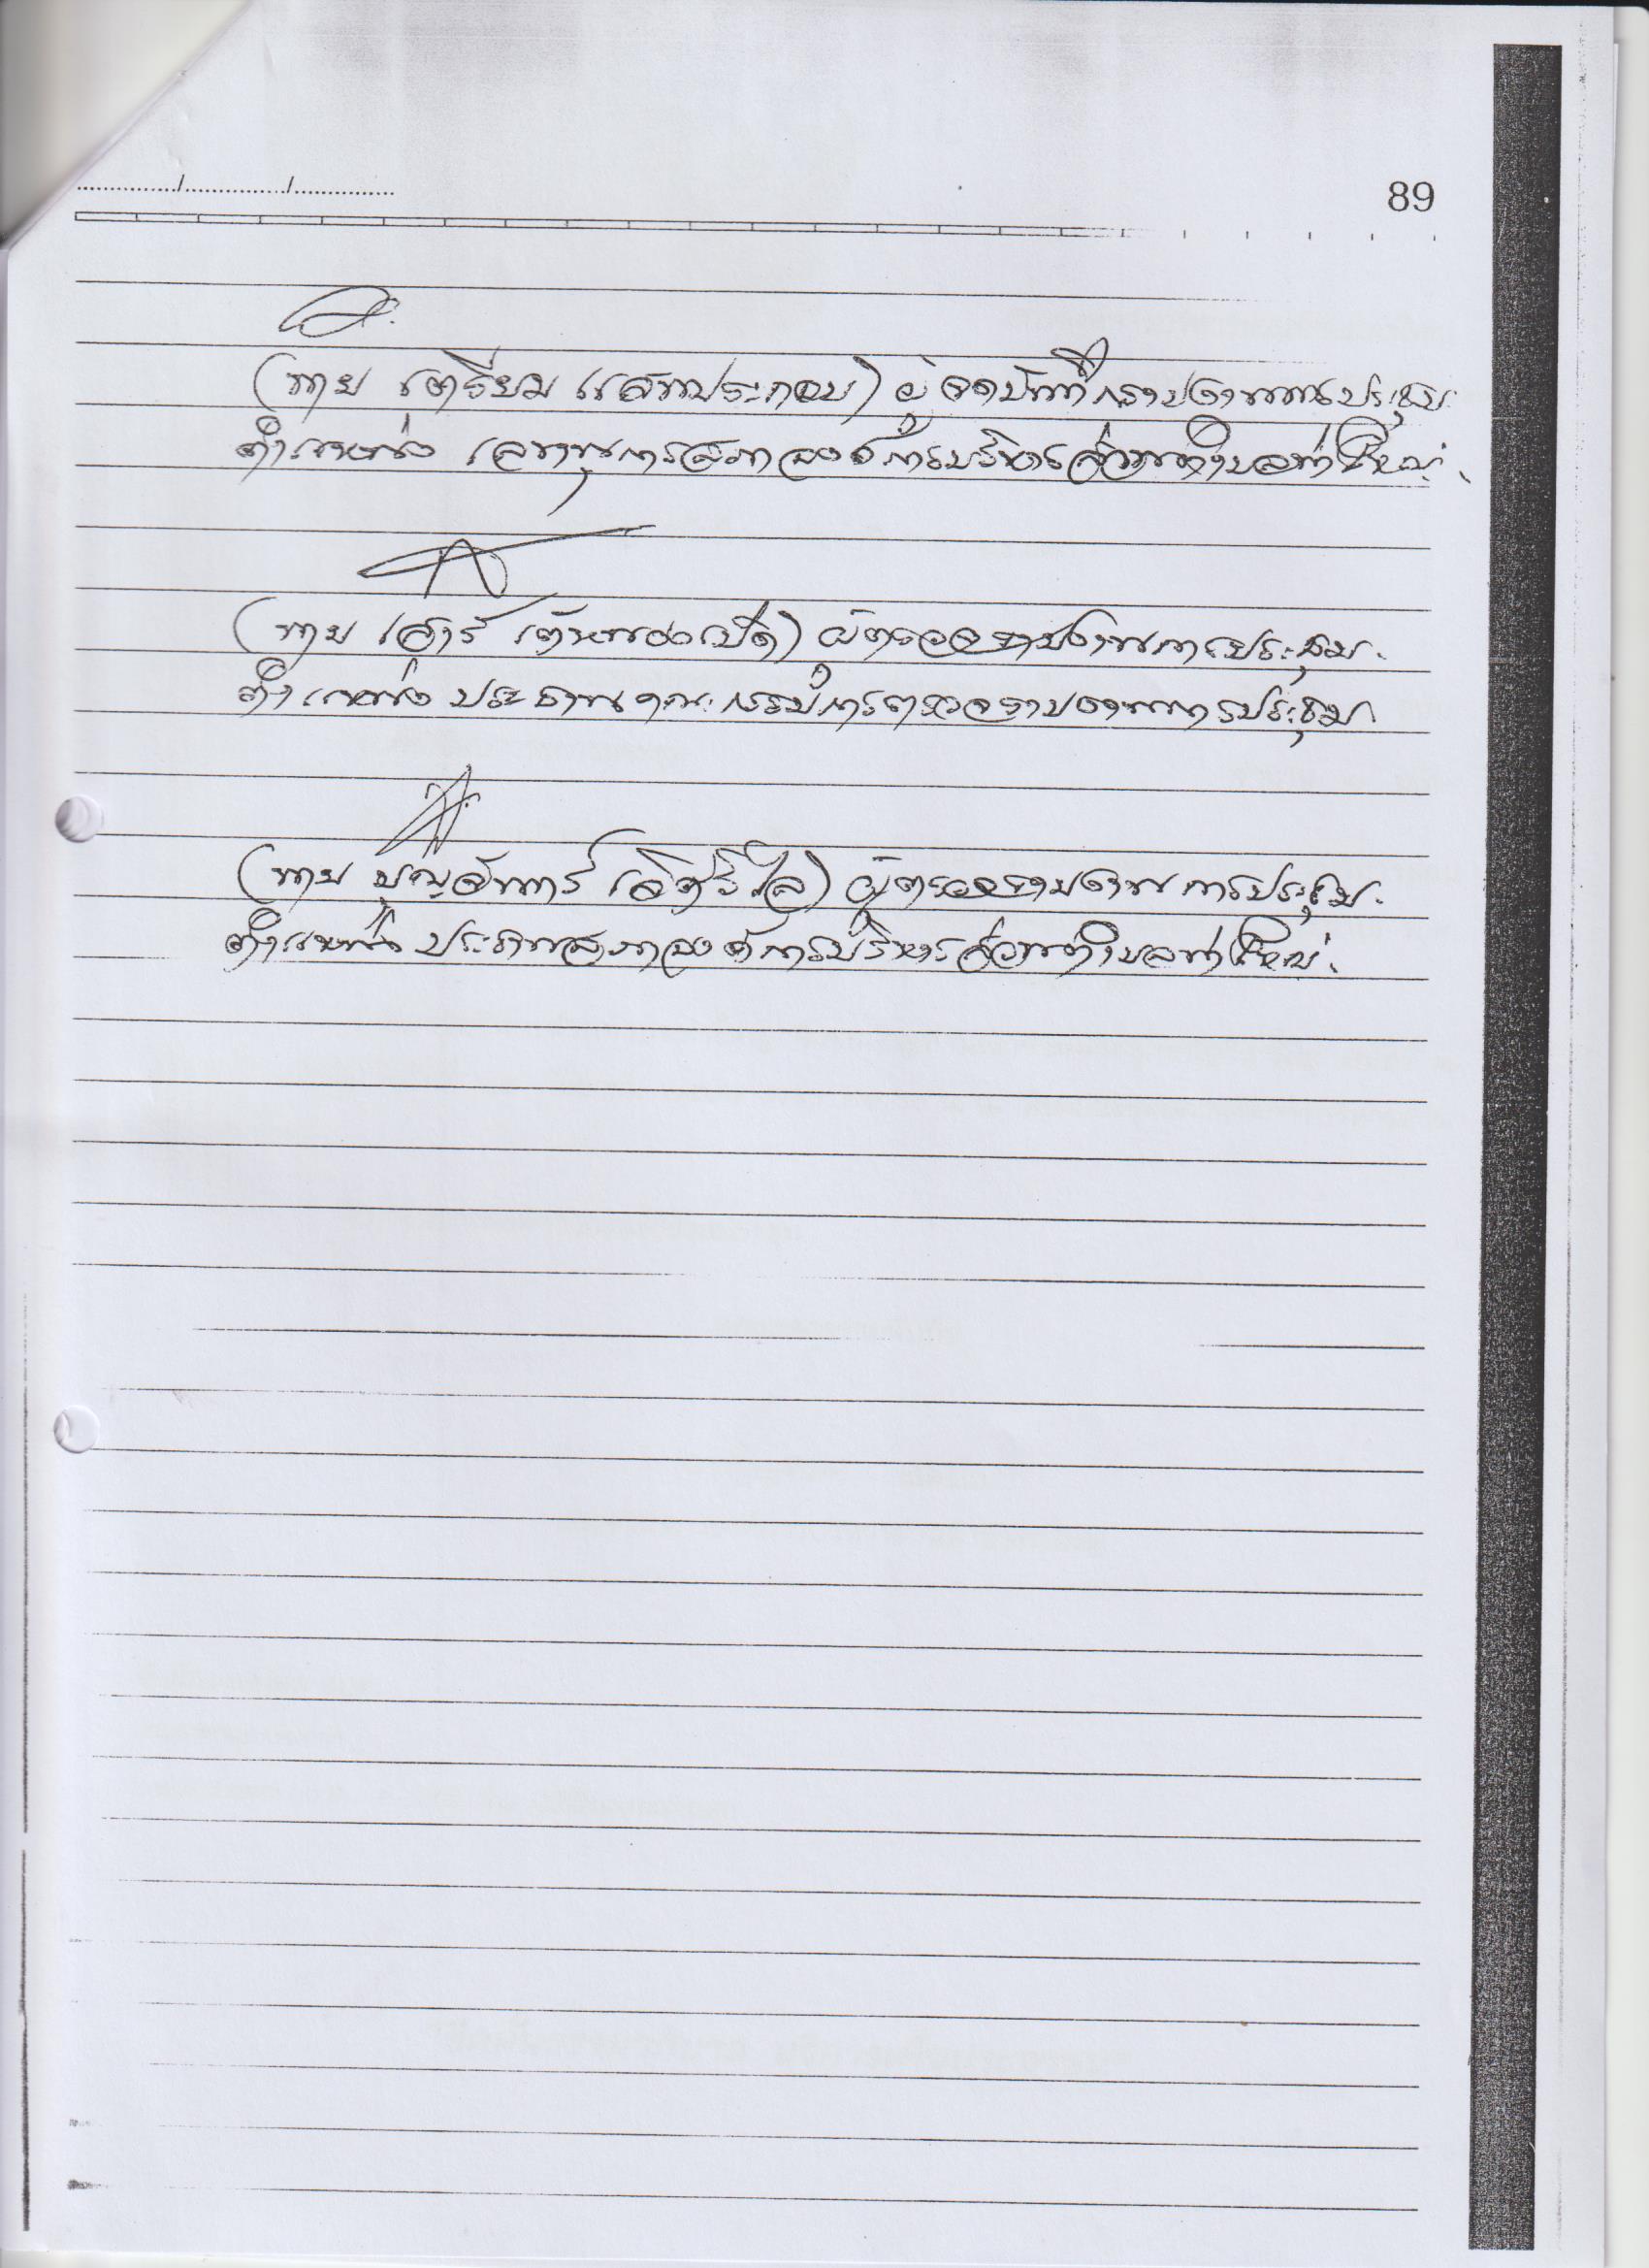 89
(นาย เตรียม แสนประกอบ) ผู้จดบันทึกรายงานการประชุม
ตำแหน่ง เลขานุการสภาองค์การบริหารส่วนตำบลท่าใหญ่
(นาย เสาร์ ) ผู้ตรวจรายงานการประชุม
ตำแหน่ง ประธานคณะกรรมการตรวจรายงานการประชุม
(นาย บุญจันทร์ ) ผู้ตรวจรายงานการประชุม
ตำแหน่ง ประธานสภาองค์การบริหารส่วนตำบลท่าใหญ่